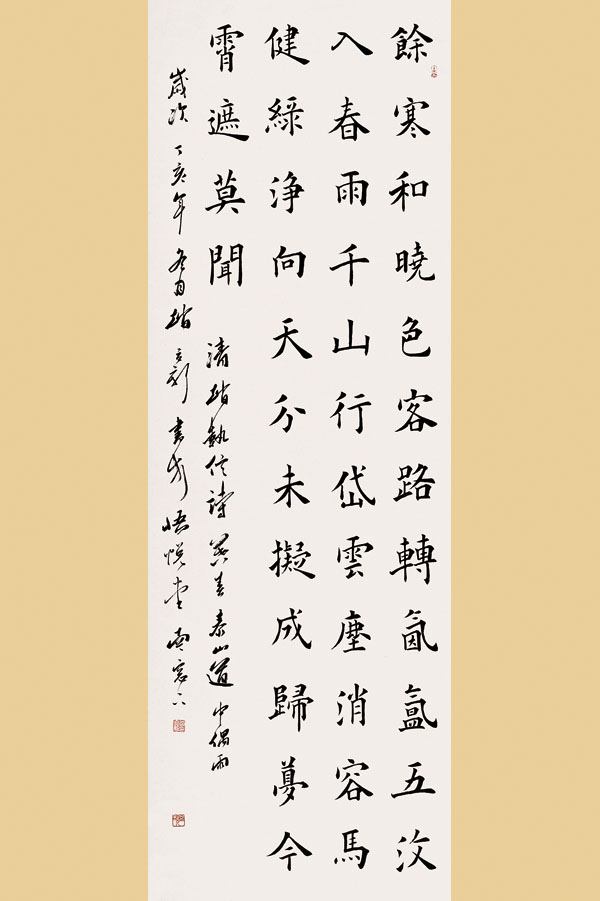 餘寒和曉色客路轉氤氳五汶
入春雨千山行岱雲塵消容馬
健綠淨向天分未擬成歸夢今
宵遮莫聞
清趙執信詩 早春泰山道中偶雨
歲次丁亥年冬月趙立新書於悟悅堂南窗下